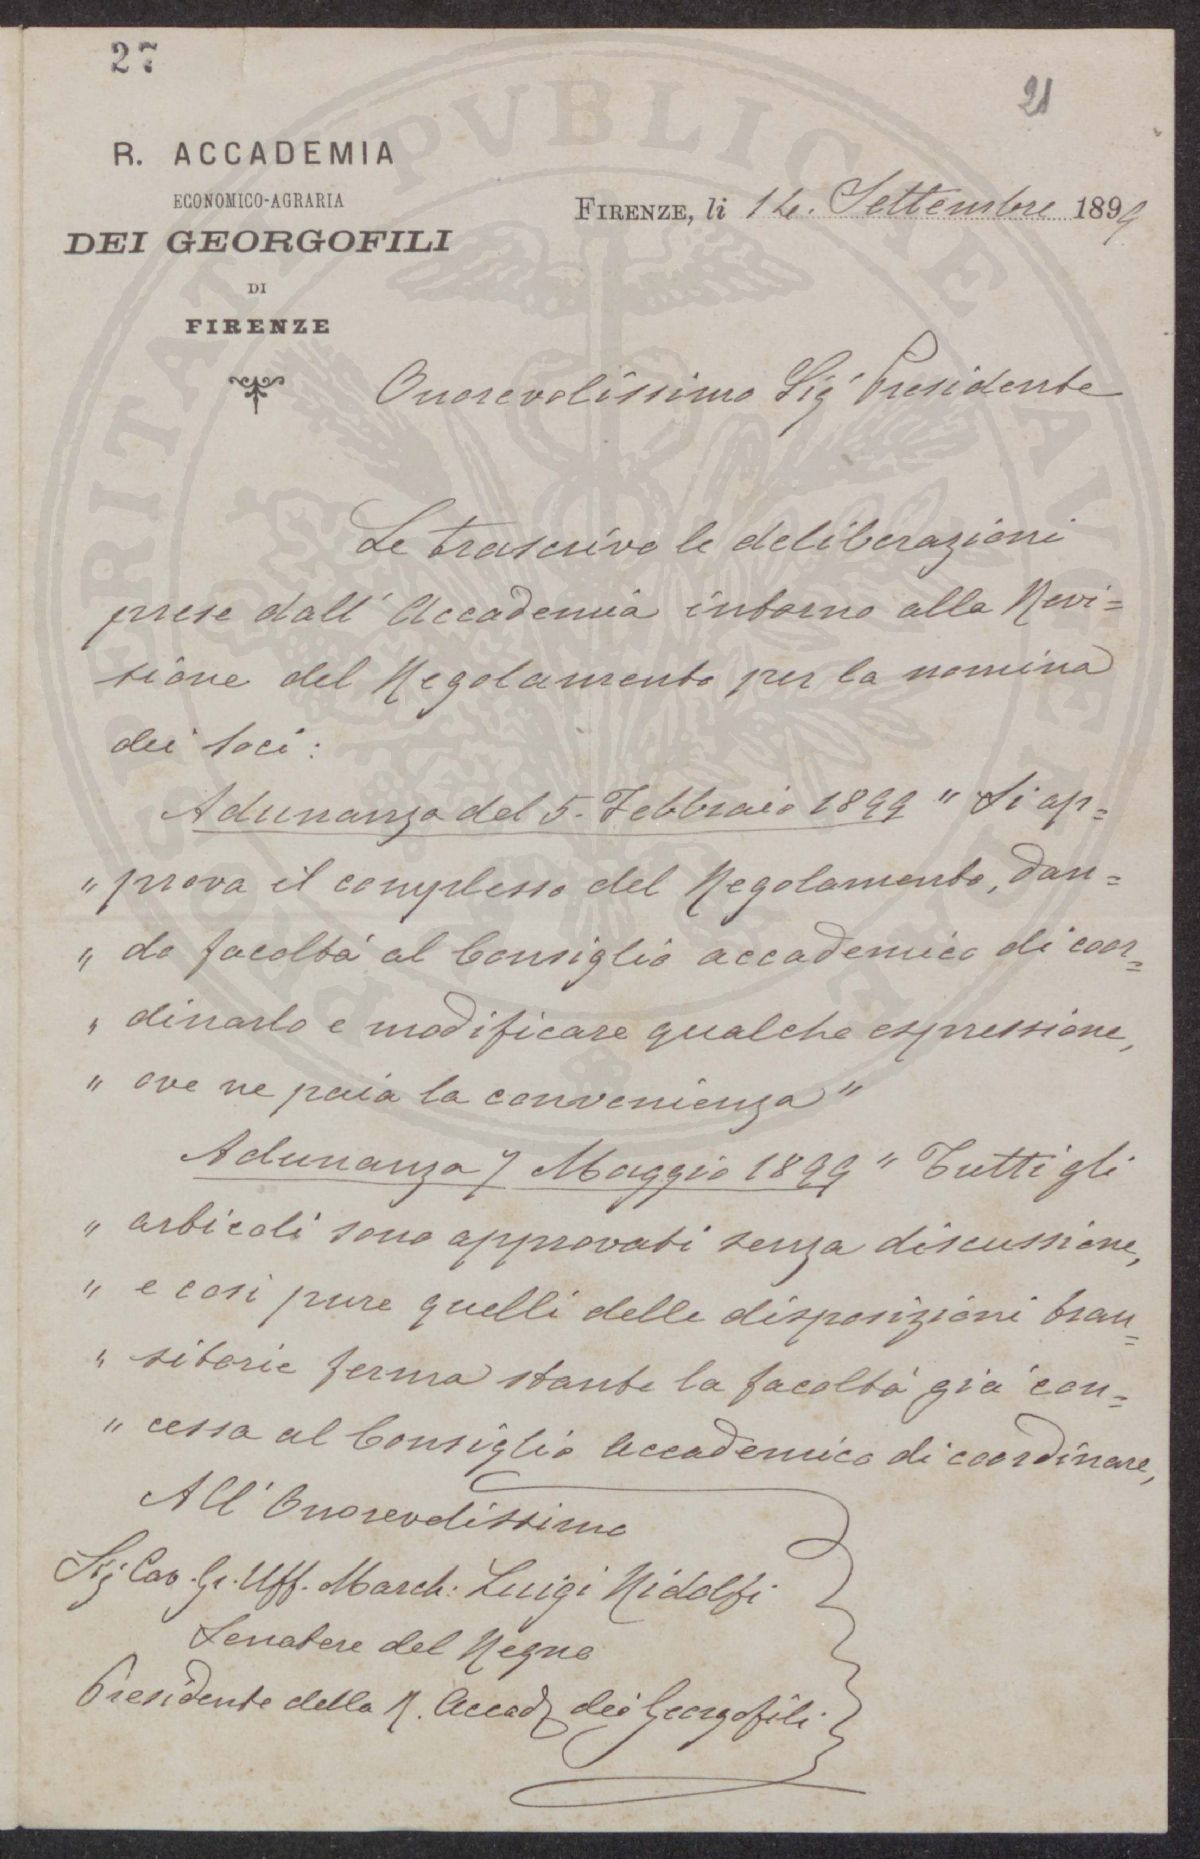 27
21
R. ACCADEMIA
ECONOMICO-AGRARIA
DEI GEORGOFILI
DI
FIRENZE
FIRENZE, li 14. Settembre 1899
Onorevolissimo Sig Presidente
Le trascrivo le deliberazioni
prese dall' Accademia intorno alla Revi=
sione del Regolamento per la nomina
dei soci:
Adunanza del 5. Febbraio 1899 " Si ap=
" prova il complesso del Regolamento, dan=
" do facoltà al Consiglio accademico di coor=
" dinarlo e modificare qualche espressione,
" ove ne paia la convenienza"
Adunanza 7 Maggio 1899 " Tutti gli
" articoli sono approvati senza discussione,
" e così pure quelli delle disposizioni tran=
" sitorie ferma stante la facoltà già con=
" cessa al Consiglio Accademico di coordinare,
All' Onorevolissimo
Sig Cav. Gr. Uff. March: Luigi Ridolfi
Senatore del Regno
Presidente della R. Accad dei Georgofili
PROSPERITATI PVBLICAE AVGENDAE